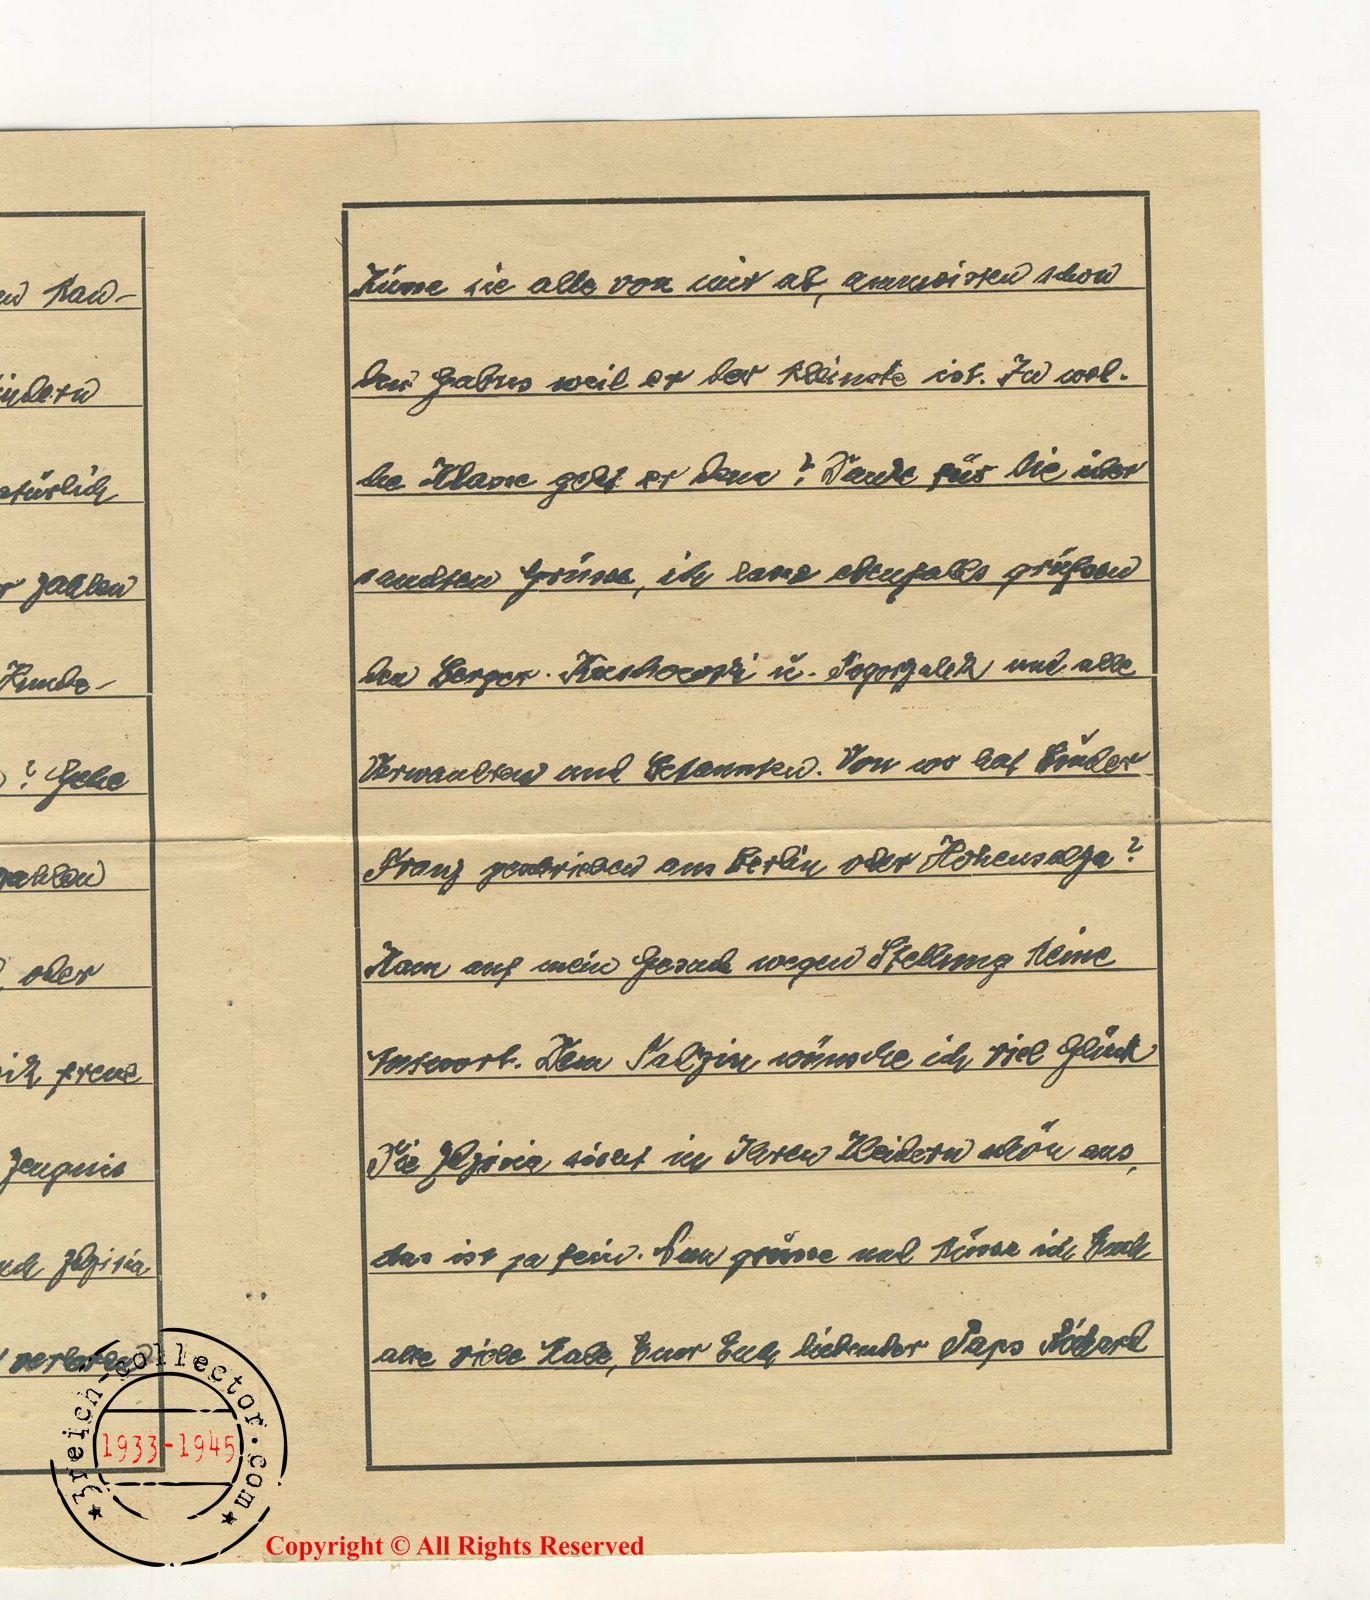 en kau-
indern
natürlich
r zahlen
Kunde-
? Gebe
zahlen
oder
ich freue
Zeugnis
verloren?
Küsse sie alle von mir ab, am meisten schon
den weil er der kleinste ist. In wel-
che Klasse geht er denn? Danke für die über
sandten Grüsse, ich lasse ebenfalls grüßsen
den Berger. u. und alle
Verwandten und Bekannten. Von wo hat Bruder
Franz geschrieben aus Berlin oder Hohensalza?
Kam auf mein Gesuch wegen Stellung keine
Antwort. Dem wünsche ich viel Glück
Die sieht in Ihren Kleidern schön aus,
das ist ja fein. Nun grüsse und küsse ich Euch
alle viele Male, Euer Euch liebender Paps Richard
3reich-collector.com
1933-1945
Copyright © All Rights Reserved